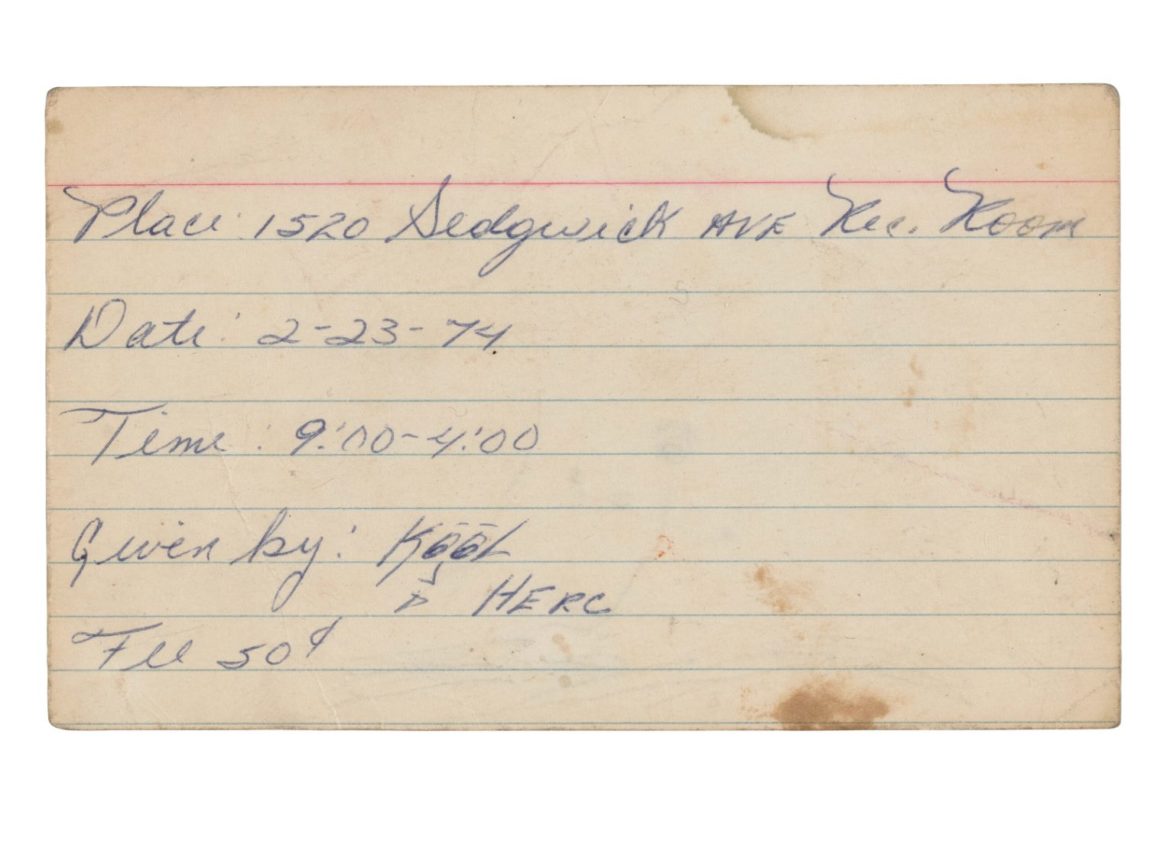 Place: 1520 Sedgwick AVE Rec. Room
Date: 2-23-74
Time: 9:00-4:00
Given by: KOOL
D HERC
Fee 50¢